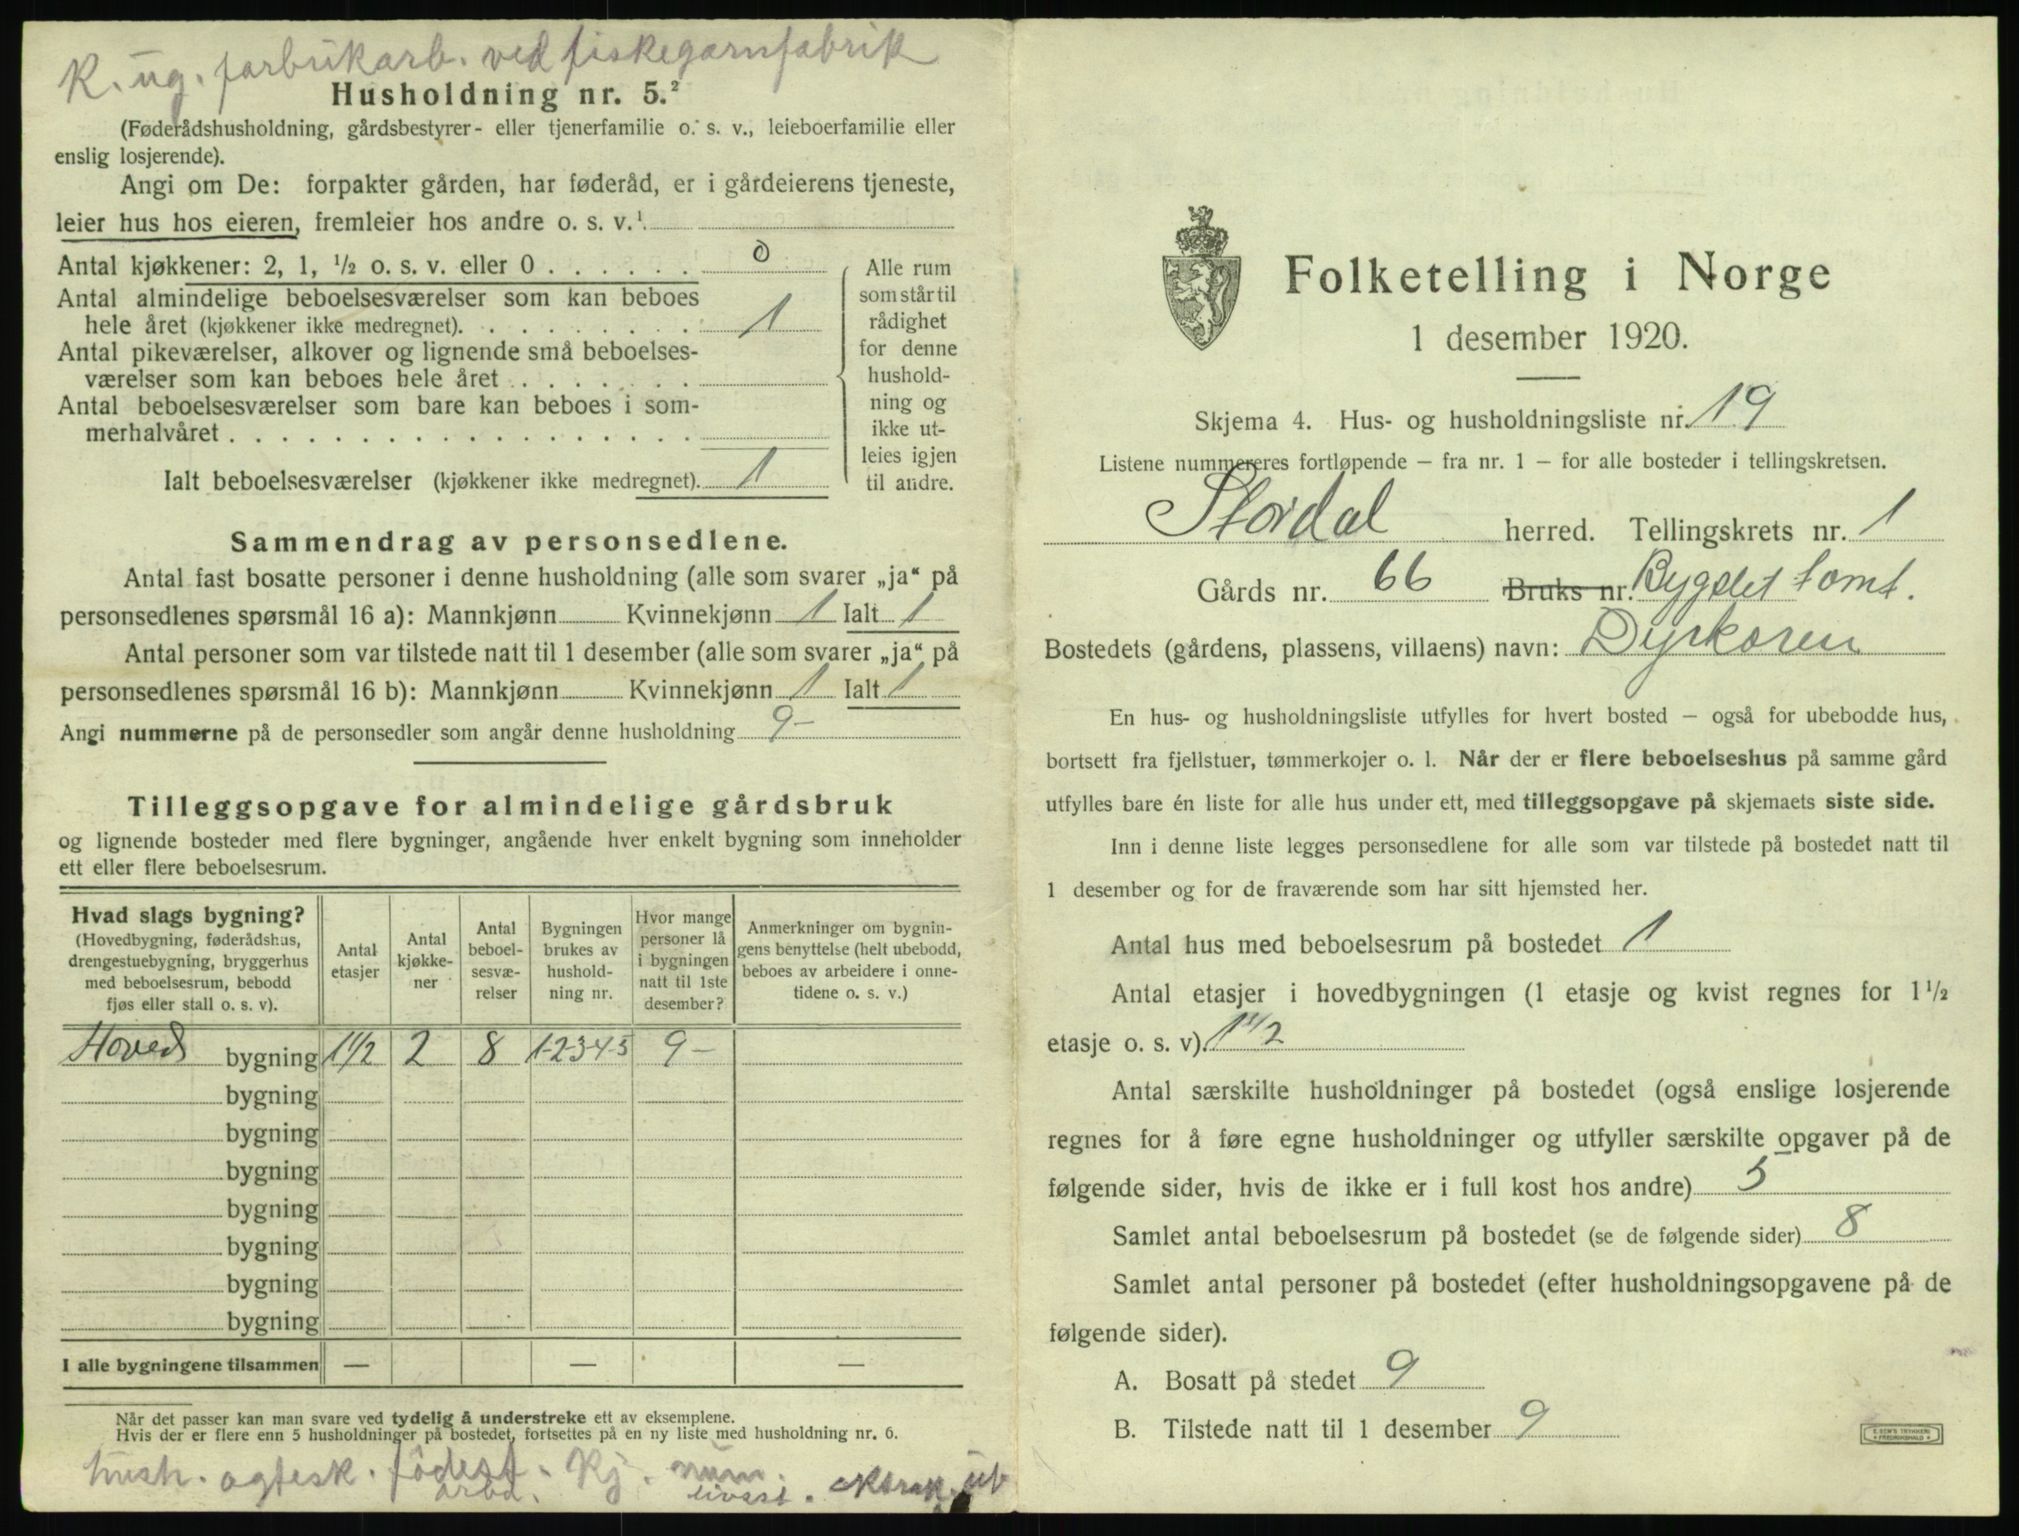 K. ug. fabrikarb. ved fiskegarnfabrik
Husholdning nr. 5.²
(Føderådshusholdning, gårdsbestyrer- eller tjenerfamilie o. s. v., leieboerfamilie eller
enslig losjerende).
Angi om De: forpakter gården, har føderåd, er i gårdeierens tjeneste,
leier hus hos eieren, fremleier hos andre o. s. v.¹
Antal kjøkkener: 2, 1, ½ o. s. v. eller 0 . . . . . . 0
Antal almindelige beboelsesværelser som kan beboes
hele året (kjøkkener ikke medregnet). . . . . . . . . 1
Antal pikeværelser, alkover og lignende små beboelses-
værelser som kan beboes hele året . . . . . . .
Antal beboelsesværelser som bare kan beboes i som-
merhalvåret . . . . . . . . . . . . . . . . . .
Ialt beboelsesværelser (kjøkkener ikke medregnet). 1
Alle rum
som står til
rådighet
for denne
hushold-
ning og
ikke ut-
leies igjen
til andre.
Sammendrag av personsedlene.
Antal fast bosatte personer i denne husholdning (alle som svarer „ja“ på
personsedlenes spørsmål 16 a): Mannkjønn Kvinnekjønn 1 Ialt 1
Antal personer som var tilstede natt til 1 desember (alle som svarer „ja“ på
personsedlenes spørsmål 16 b): Mannkjønn Kvinnekjønn 1 Ialt 1
Angi nummerne på de personsedler som angår denne husholdning 9-
Tilleggsopgave for almindelige gårdsbruk
og lignende bosteder med flere bygninger, angående hver enkelt bygning som inneholder
ett eller flere beboelsesrum.
Hvad slags bygning?
(Hovedbygning, føderådshus,
drengestuebygning, bryggerhus
med beboelsesrum, bebodd
fjøs eller stall o. s. v).
Antal
etasjer
Antal
kjøkke-
ner
Antal
beboel-
sesvæ-
relser
Bygningen
brukes av
hushold-
ning nr.
Hvor mange
personer lå
i bygningen
natt til 1ste
desember?
Anmerkninger om bygnin-
gens benyttelse (helt ubebodd,
beboes av arbeidere i onne-
tidene o. s. v.)
Hoved bygning 1½ 2 8 1-2-3-4-5 9-
bygning
bygning
bygning
bygning
bygning
bygning
bygning
I alle bygningene tilsammen — — —
Når det passer kan man svare ved tydelig å understreke ett av eksemplene.
Hvis der er flere enn 5 husholdninger på bostedet, fortsettes på en ny liste med husholdning nr. 6.
hush.
Folketelling i Norge
1 desember 1920.
Skjema 4. Hus- og husholdningsliste nr. 19
Listene nummereres fortløpende — fra nr. 1 — for alle bosteder i tellingskretsen.
Stordal herred. Tellingskrets nr. 1
Gårds nr. 66 Bruks nr. Bygslet tomt.
Bostedets (gårdens, plassens, villaens) navn: Dyrkoren
En hus- og husholdningsliste utfylles for hvert bosted — også for ubebodde hus,
bortsett fra fjellstuer, tømmerkojer o. l. Når der er flere beboelseshus på samme gård
utfylles bare én liste for alle hus under ett, med tilleggsopgave på skjemaets siste side.
Inn i denne liste legges personsedlene for alle som var tilstede på bostedet natt til
1 desember og for de fraværende som har sitt hjemsted her.
Antal hus med beboelsesrum på bostedet 1
Antal etasjer i hovedbygningen (1 etasje og kvist regnes for 1½
etasje o. s. v). 1½
Antal særskilte husholdninger på bostedet (også enslige losjerende
regnes for å føre egne husholdninger og utfyller særskilte opgaver på de
følgende sider, hvis de ikke er i full kost hos andre) 5
Samlet antal beboelsesrum på bostedet (se de følgende sider) 8
Samlet antal personer på bostedet (efter husholdningsopgavene på de
følgende sider).
A. Bosatt på stedet 9
B. Tilstede natt til 1 desember 9
E. SEM'S TRYKKERI
FREDRIKSHALD